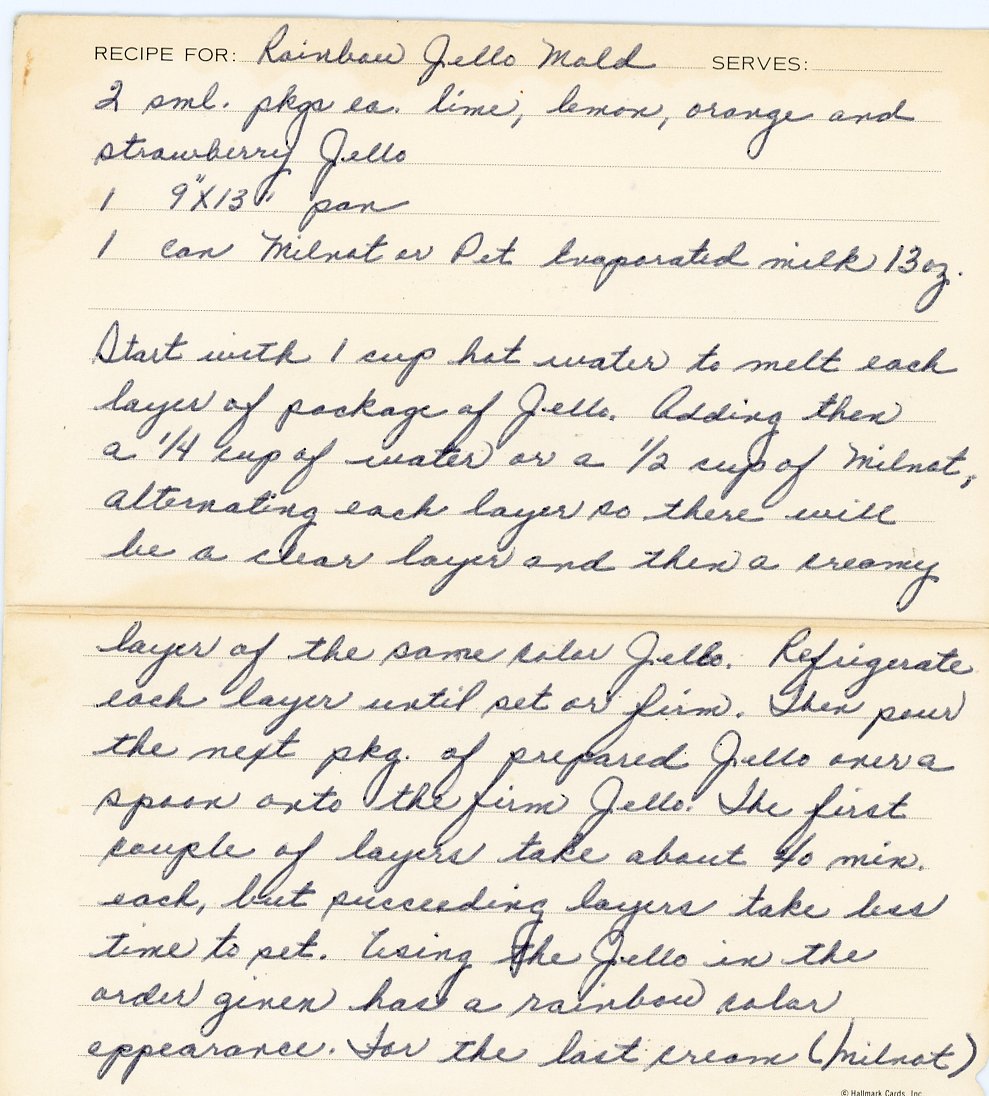 RECIPE FOR: Rainbow Jello Mold SERVES:
2 sml. pkgs ea. lime, lemon, orange and
strawberry Jello
1 9"X13" pan
1 can Milnot or Pet Evaporated milk 13 oz.
Start with 1 cup hot water to melt each
layer of package of Jello. Adding then
a 1/4 cup of water or a 1/2 cup of Milnot,
alternating each layer so there will
be a clear layer and then a creamy
layer of the same color Jello. Refrigerate
each layer until set or firm. Then pour
the next pkg. of prepared Jello over a
spoon onto the firm Jello. The first
couple of layers take about 40 min.
each, but succeeding layers take less
time to set. Using the Jello in the
order given has a rainbow color
appearance. For the last cream (Milnot)
© Hallmark Cards, Inc.